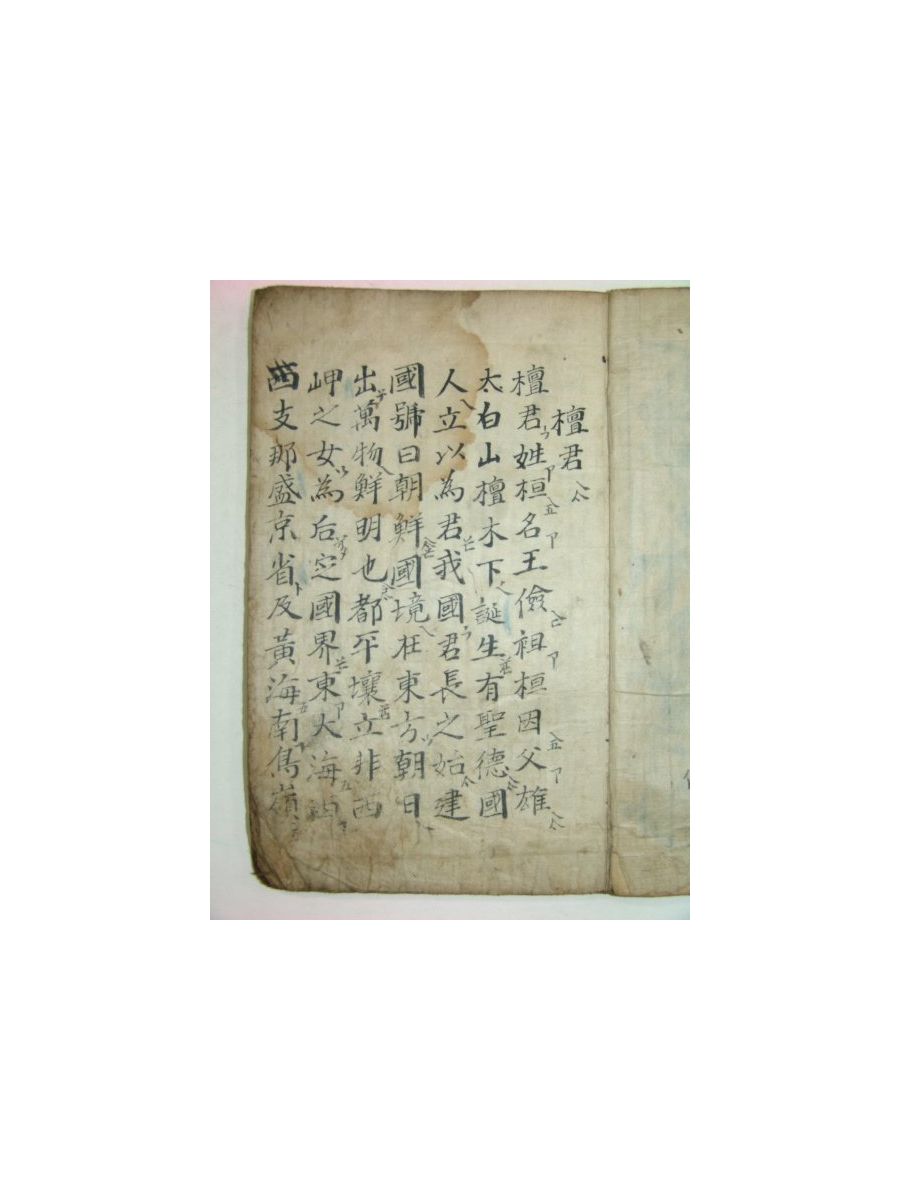 檀君
檀君姓桓名王儉祖桓因父雄
太白山檀木下誕生有聖德國
人立以為君我國君長之始建
國號曰朝鮮國境在東方朝日
出萬物鮮明也都平壤立非西
岬之女為后定國界東大海西
支那盛京省及黃海南鳥嶺